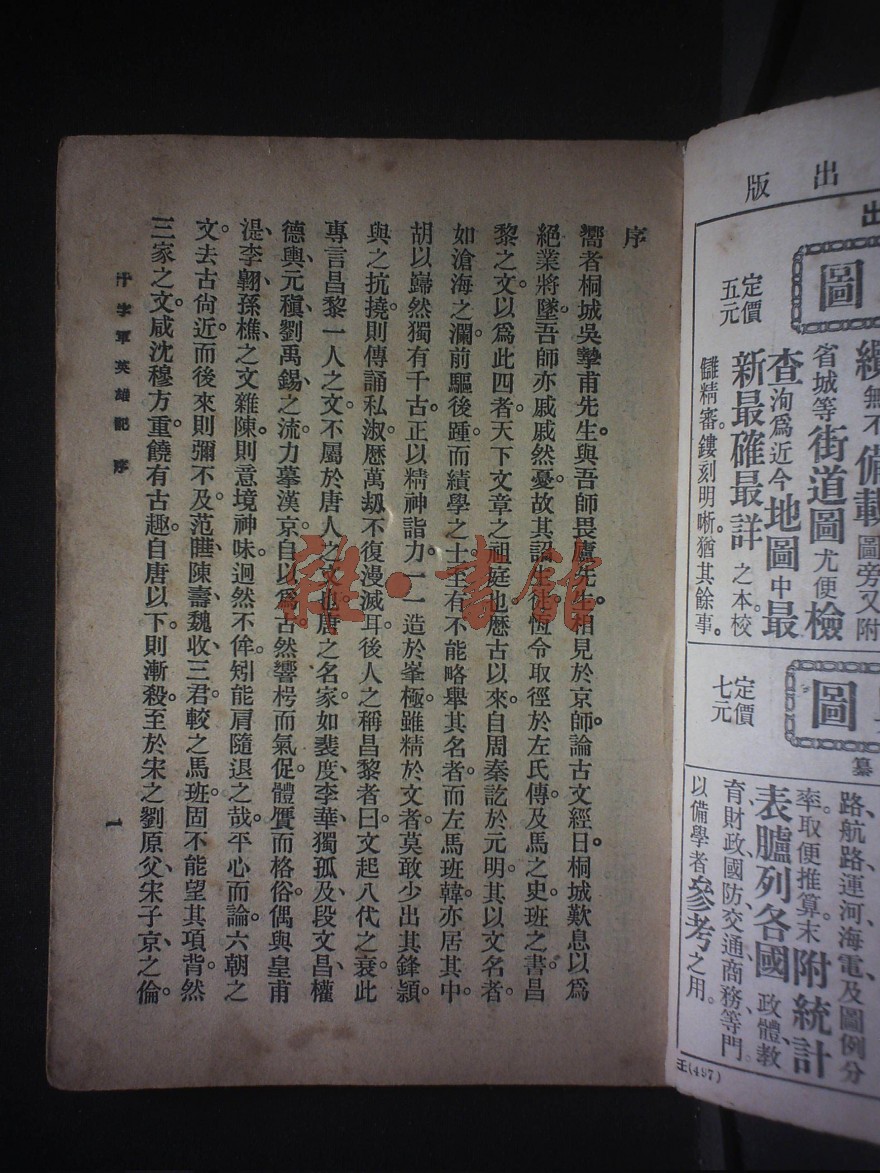 序
嚮者桐城吳摯甫先生與吾師畏廬先生相見於京師論古文經日桐城歎息以爲
絕業將墜吾師亦戚戚然憂故其詔生徒恆令取徑於左氏傳及馬之史班之書昌
黎之文以爲此四者天下文章之祖庭也歷古以來自周秦訖於元明其以文名者
如滄海之瀾前驅後踵而績學之士至有不能略舉其名者而左馬班韓亦居其中
胡以巋然獨有千古正以精神詣力一一造於峯極雖精於文者莫敢少出其鋒穎
與之抗撓則傳誦私淑歷萬刼不復漫滅耳後人之稱昌黎者曰文起八代之衰此
專言昌黎一人之文不屬於唐人之文也唐之名家如裴度、李華、獨孤及、段文昌、權
德輿、元稹、劉禹錫之流力摹漢京自以爲古然響枵而氣促體贗而格俗偶與皇甫
湜、李翺、孫樵之文雜陳則意境神味迥然不侔矧能肩隨退之哉平心而論六朝之
文去古尙近而後來則彌不及范曄、陳壽、魏收三君較之馬班固不能望其項背然
三家之文咸沈穆方重饒有古趣自唐以下則漸殺至於宋之劉原父、宋子京之倫
十字軍英雄記 序
一
雜·書館
出版
出
圖
定價
五元
無不備載圖旁又附
省城等街道圖尤便檢
查洵爲近今地圖中最
新最確最詳之本校
讎精審。鏤刻明晰。猶其餘事。
圖
定價
七元
纂
路航路運河海電及圖例分
率取便推算。末附統計
表臚列各國政體、敎
育、財政、國防、交通、商務等門。
以備學者參考之用。
王(497)